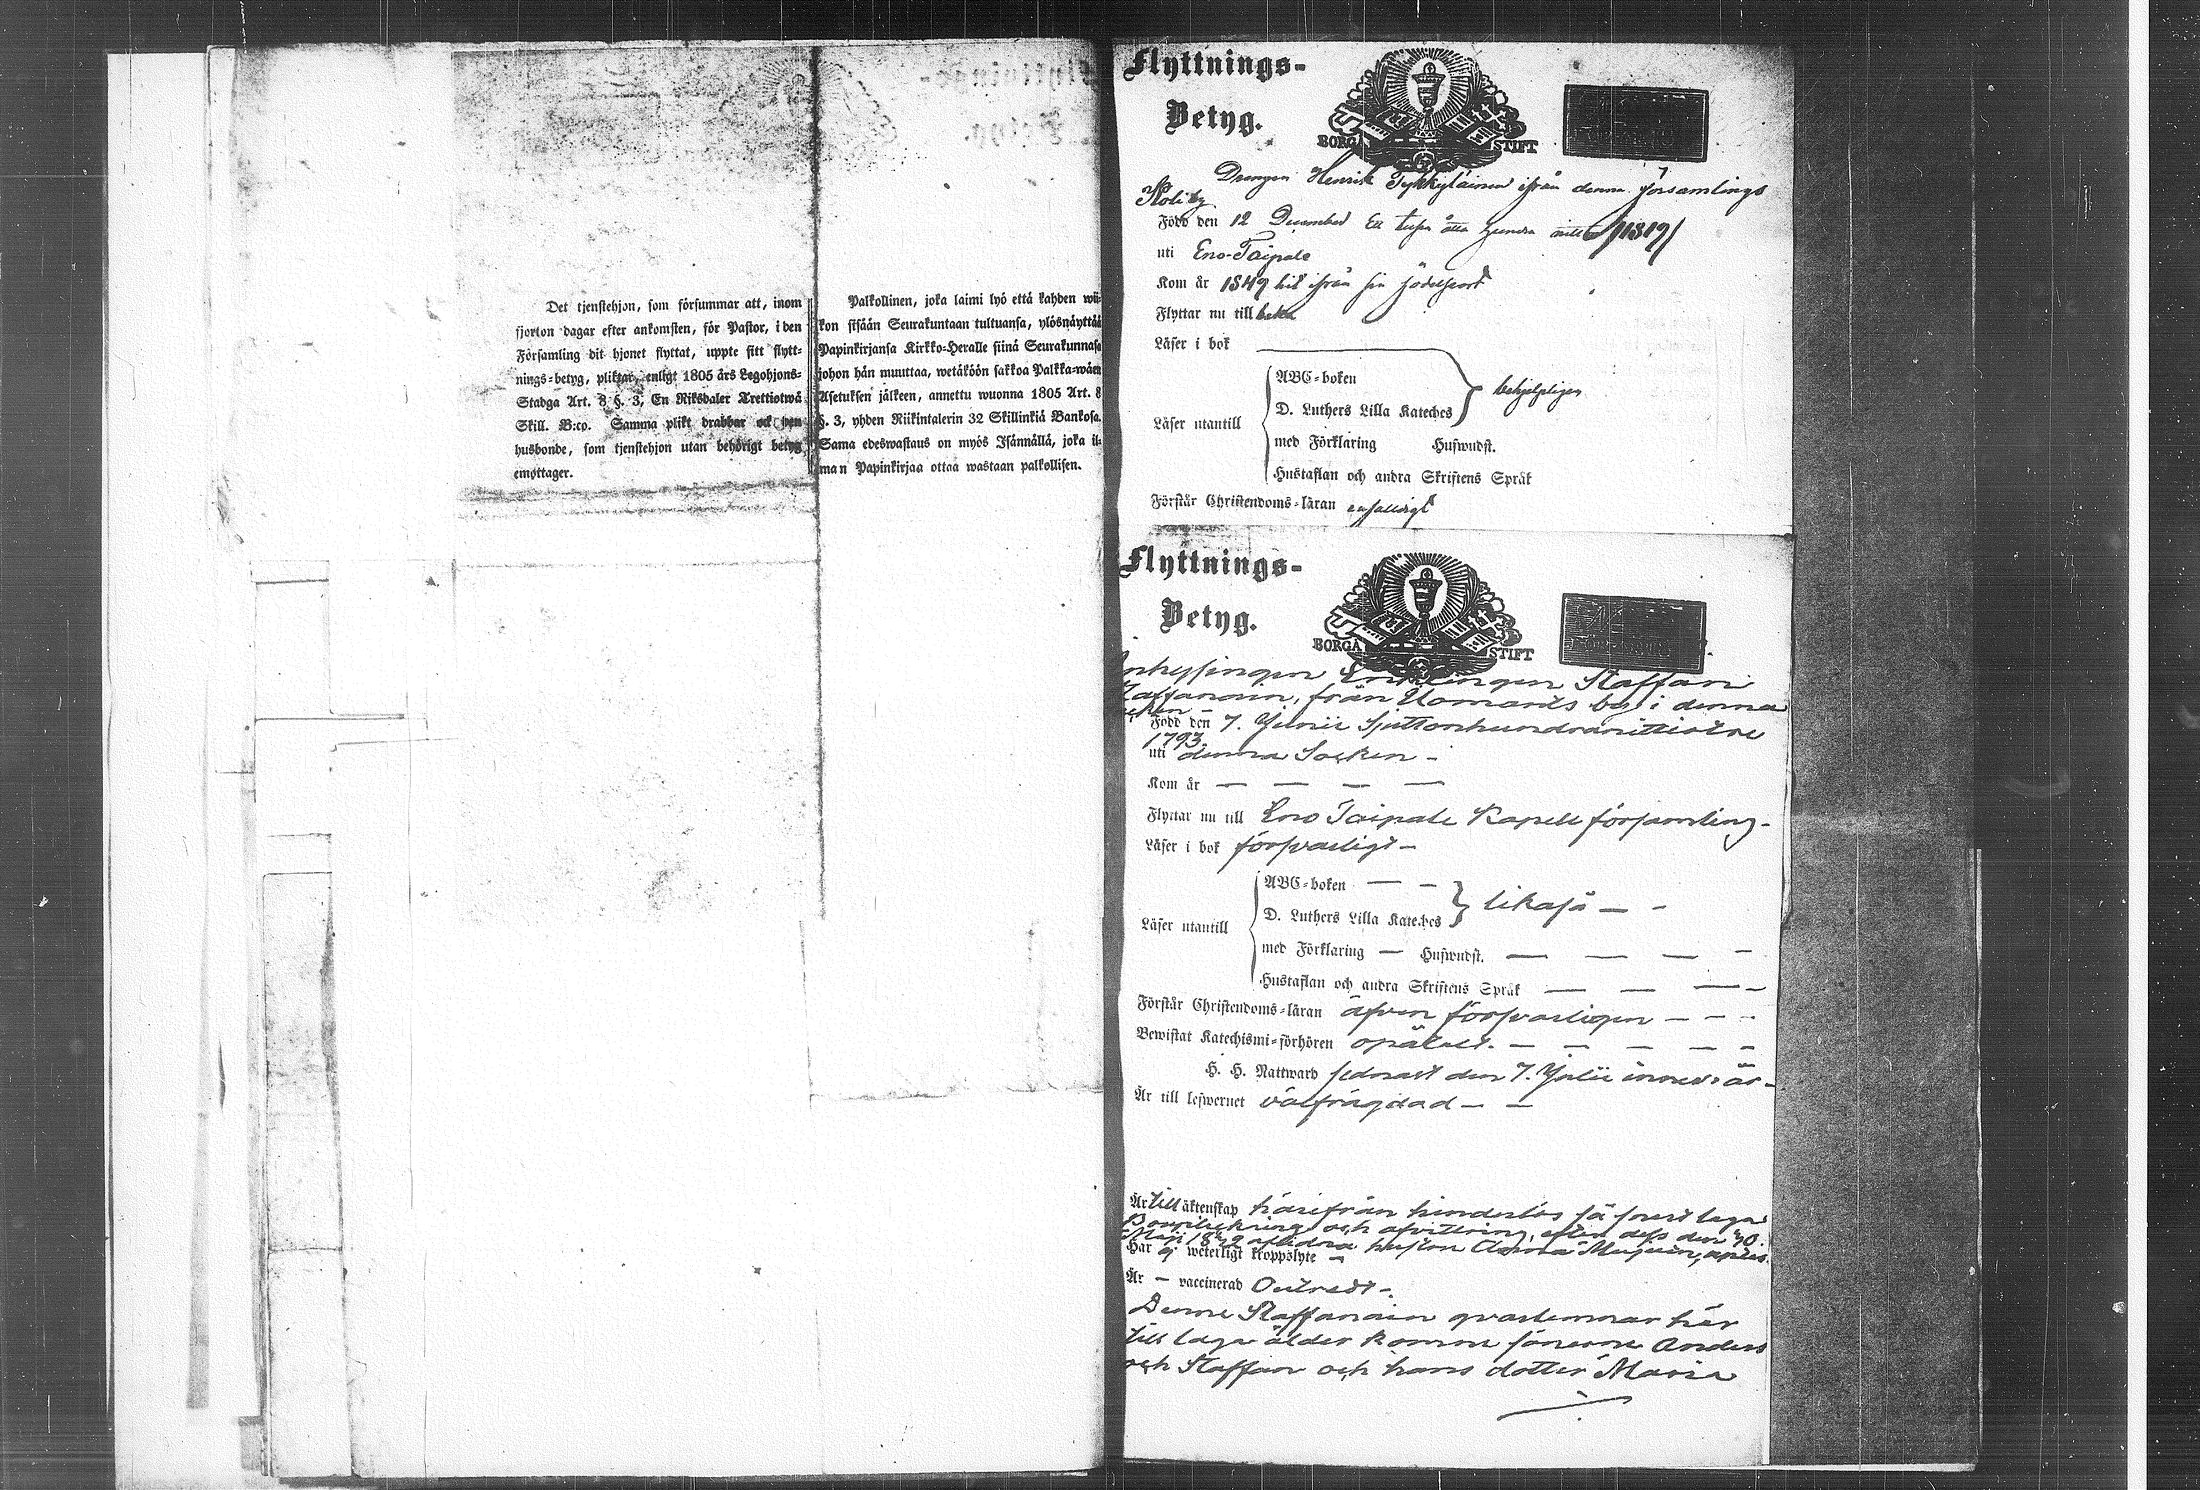 Det tjenstehjon, som försummar att, inom
fjorton dagar efter ankomsten, för Pastor, i den
Församling dit hjonet flyttat, uppte sitt flytt-
nings-betyg, pliktar, enligt 1805 års Legohjons-
Stadga Art. 8 §. 3, En Riksdaler Trettiotwå
Skill. B:co. Samma plikt drabbar ock den
husbonde, som tjenstehjon utan behörigt betyg
emottager.
Palkollinen, joka laimi lyö että kahden wii-
kon sisään Seurakuntaan tultuansa, ylösnäyttää
Papinkirjansa Kirkko-Heralle siinä Seurakunnasa
johon hän muuttaa, wetäköön sakkoa Palkka-wäen
Asetuksen jälkeen, annettu wuonna 1805 Art. 8
§. 3, yhden Riikintalerin 32 Skillinkiä Bankosa.
Sama edeswastaus on myös Isännällä, joka il-
man Papinkirjaa ottaa wastaan palkollisen.
Flyttnings-
Betyg.
BORGÅ STIFT
Drengen Henrik Tykkyläinen ifrån denna församlings
Koli by
Född den 12 December Ett tusen åtta hundra /1819/
uti Eno-Taipale
Kom år 1849 hit ifrån sin födelseort
Flyttar nu till
Läser i bok
ABC-boken
D. Luthers Lilla Kateches behjelpligen
Läser utantill
med Förklaring Huswudst.
Hustaflan och andra Skriftens Språk
Förstår Christendoms-läran enfaldigt
Flyttnings-
Betyg.
BORGÅ STIFT
Inhysingen Enklingen Staffan
från by i denna
Socken
Född den 7. Junii Sjuttonhundranittiotre
1793.
uti denna Socken -
Kom år — — — —
Flyttar nu till Eno Taipale Kapell församling -
Läser i bok försvarligt -
ABC-boken — -
D. Luthers Lilla Kateches likaså — -
Läser utantill
med Förklaring — Huswudst. — — — -
Hustaflan och andra Skriftens Språk — — — -
Förstår Christendoms-läran äfven försvarligen - - -
Bewistat Katechismi-förhören - - - - -
H. H. Nattward sednast den 7. Julii innev: år -
Är till lefwernet välfrägdad - -
Är till äktenskap härifrån hinderlös så snart laga
och afvittring, efter dess den 30.
Maji aflidna hustru Anna
Har ej weterligt kroppslyte -
Är - vaccinerad
Denne Staffan här
till laga ålder komne sönerne Anders
och Staffan och hans dotter Maria